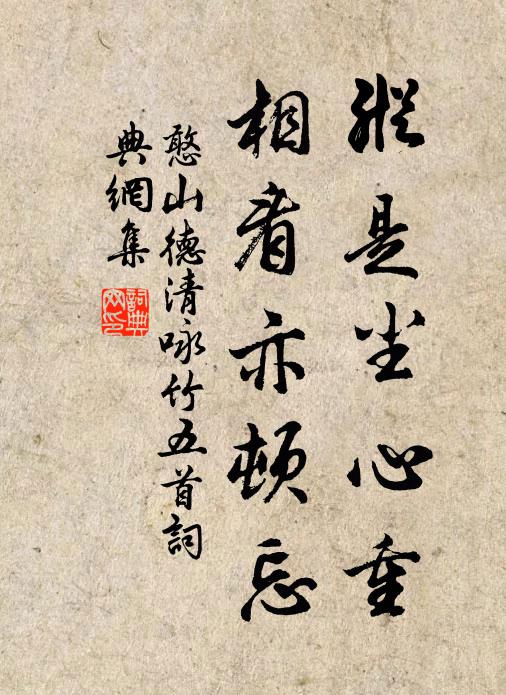 縱是尘心重
相看亦頓忘
憨山德清咏竹五首詞
典網集
詞典
网印